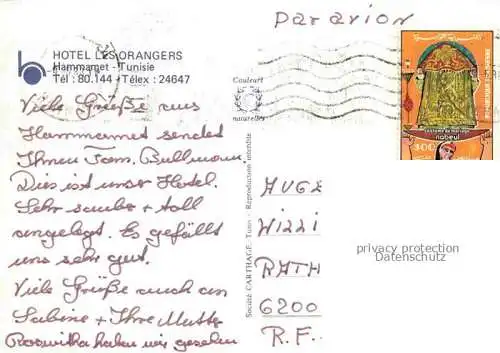 Par avion
HOTEL LES ORANGERS
Hammamet - Tunisie
Tél : 80.144 - Télex : 24647
Couleurs
naturelles
Costume de mariage
nabeul
300
Viele Grüße aus
Hammamet sendet
Ihnen Fam. Bullmann.
Dies ist unser Hotel.
Sehr sauber + toll
angelegt. Es gefällt
uns sehr gut.
Viele Grüße auch an
Sabine + Ihre Mutter
Roswitha haben wir gesehen
Société CARTHAGE, Tunis - Reproduction interdite
6200
R.F.
privacy protection
Datenschutz